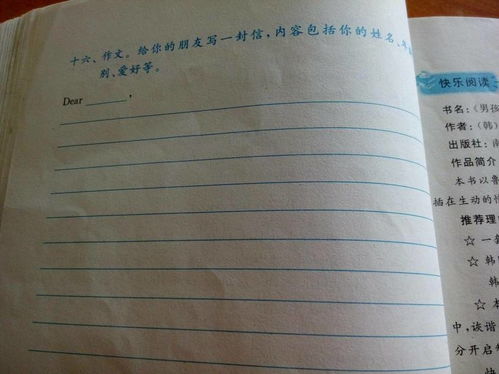 十六、作文。给你的朋友写一封信，内容包括你的姓名、年
别、爱好等。
Dear ______ ,
快乐阅读
书名：《男孩
作者：（韩）
出版社：南
作品简介
本书以鲁
插在生动的
推荐理
☆ 一套
☆ 韩
韩
☆ 本
中，诙谐
分开启
快